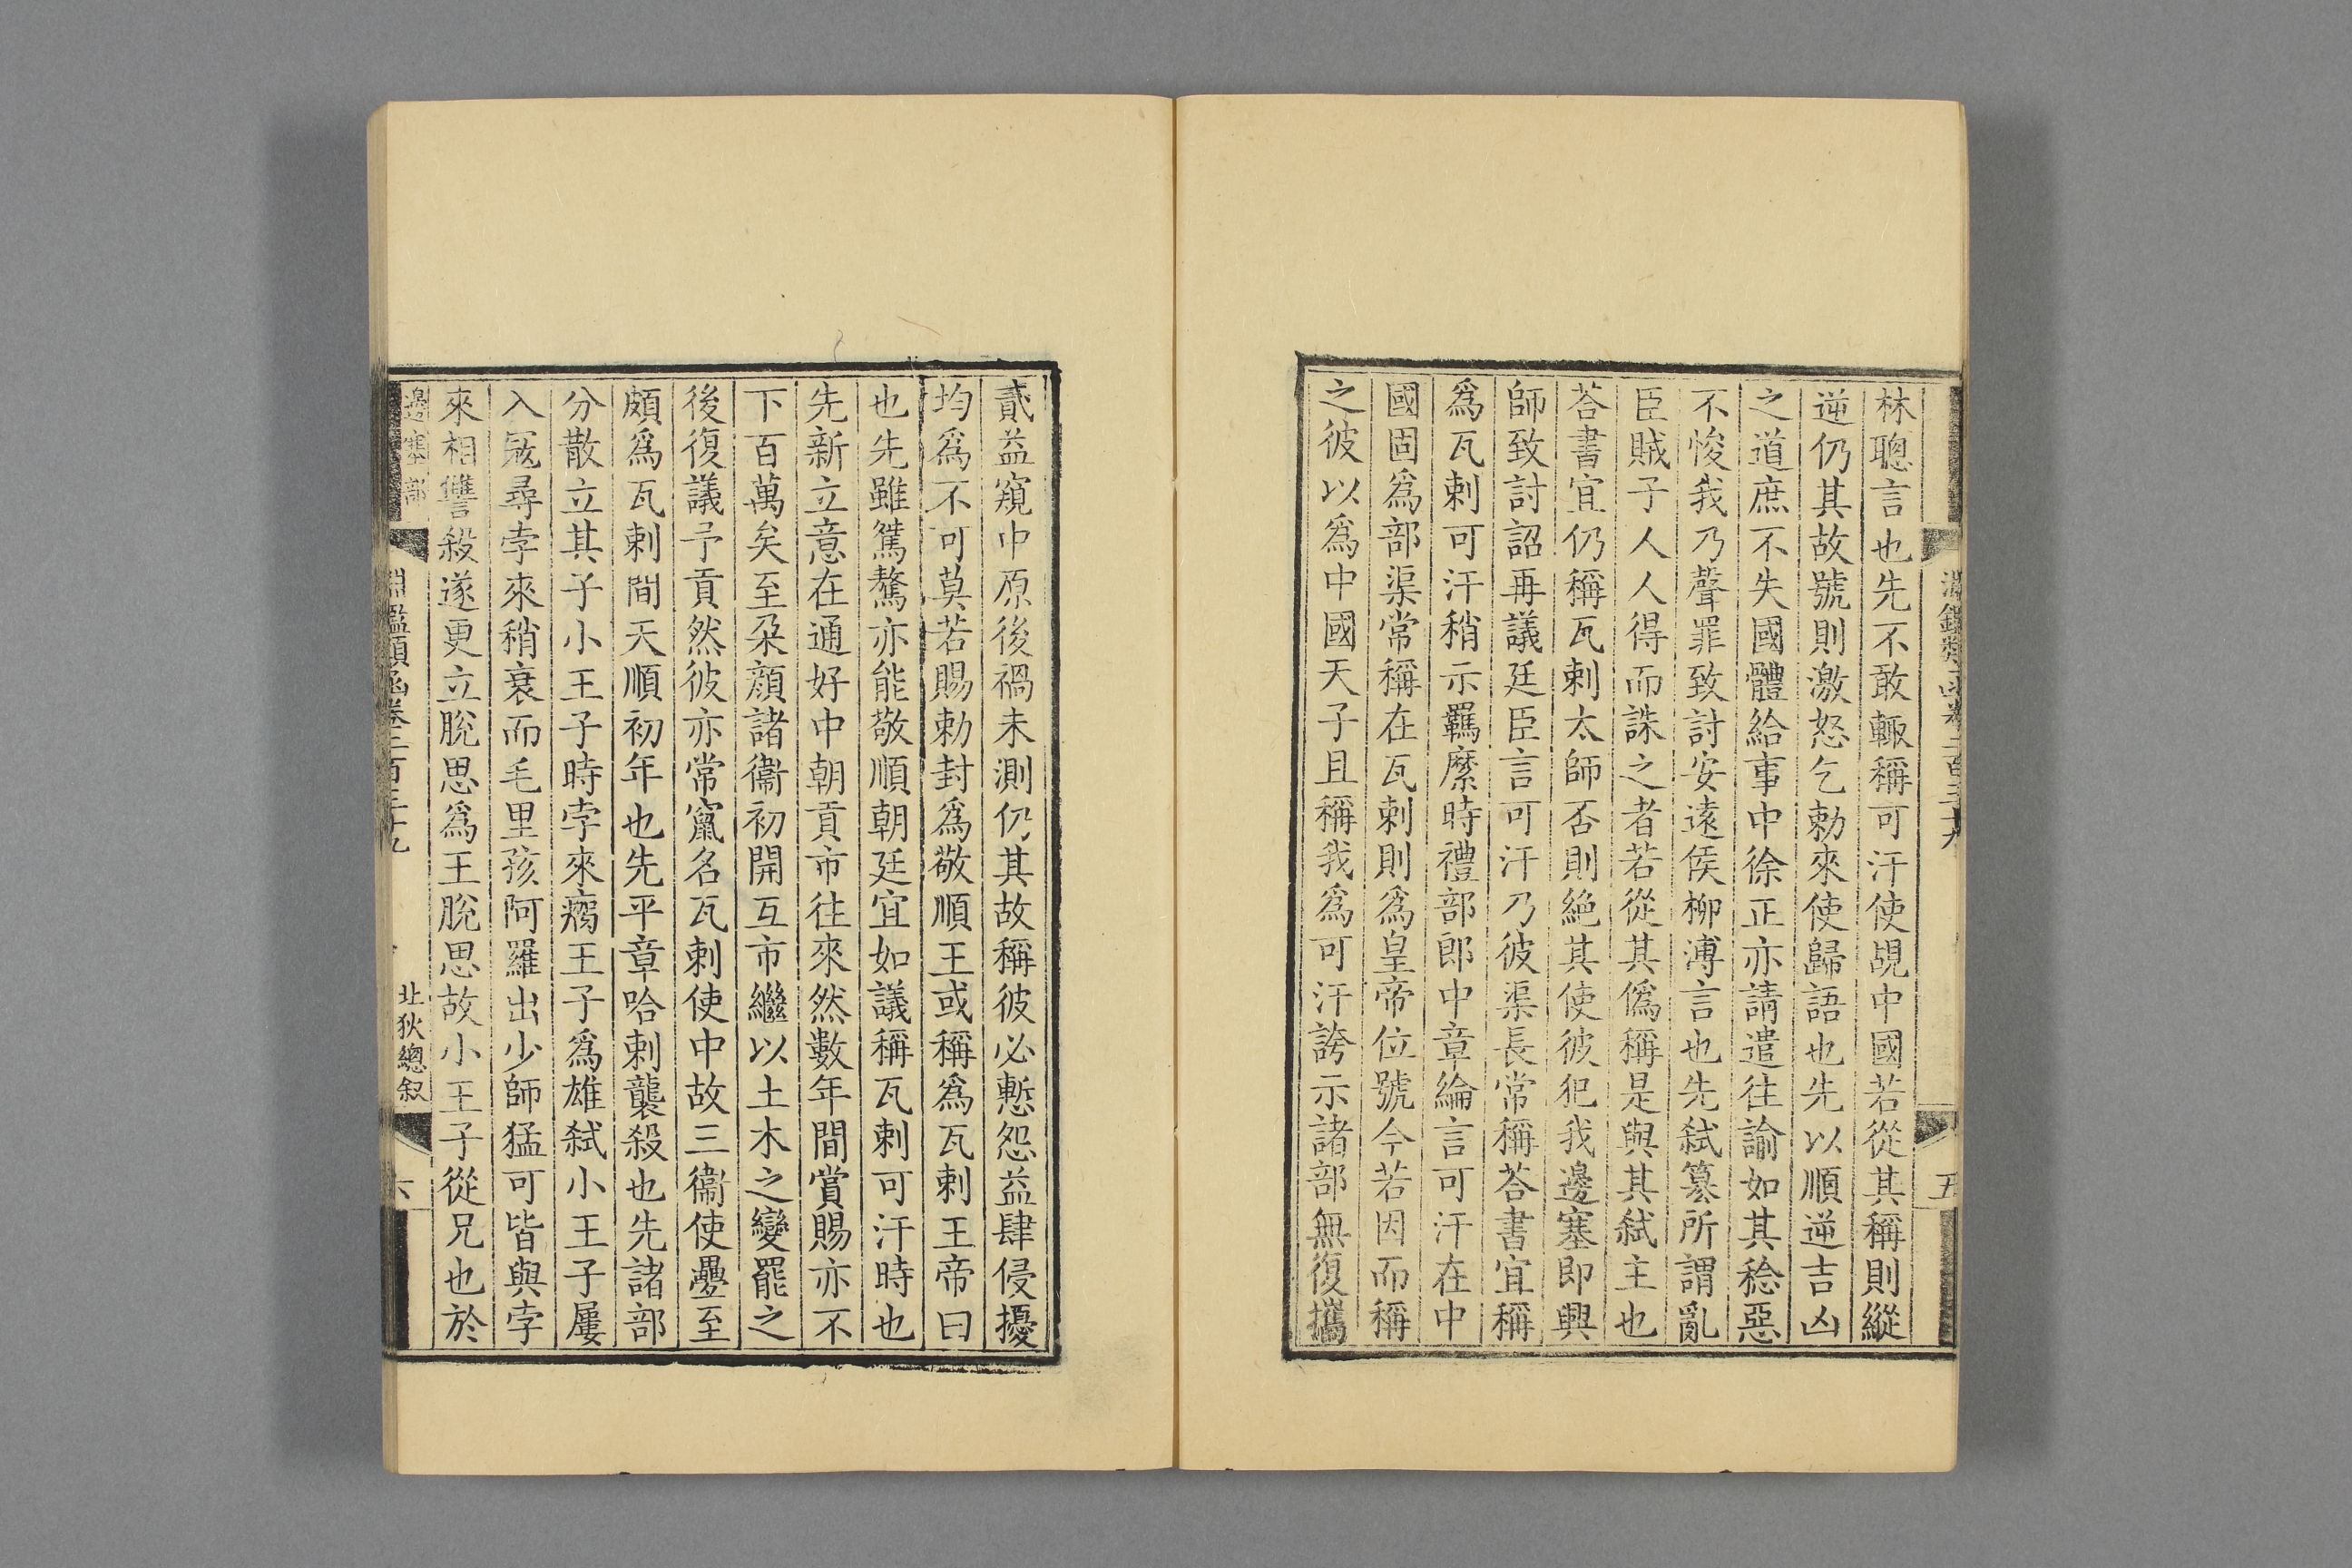 淵鑑類函卷二百三十九
五
林聰言也先不敢輙稱可汗使覘中國若從其稱則縱
逆仍其故號則激怒乞勅來使歸語也先以順逆吉凶
之道庶不失國體給事中徐正亦請遣往諭如其稔惡
不悛我乃聲罪致討安遠侯柳溥言也先弒篡所謂亂
臣賊子人人得而誅之者若從其僞稱是與其弒主也
荅書宜仍稱瓦剌太師否則絶其使彼犯我邊塞即興
師致討詔再議廷臣言可汗乃彼渠長常稱荅書宜稱
爲瓦剌可汗稍示羈縻時禮部郎中章綸言可汗在中
國固爲部渠常稱在瓦剌則爲皇帝位號今若因而稱
之彼以爲中國天子且稱我爲可汗誇示諸部無復攜
貳益窺中原後禍未測仍其故稱彼必慙怨益肆侵擾
均爲不可莫若賜勅封爲敬順王或稱爲瓦剌王帝曰
也先雖鴑驁亦能敬順朝廷宜如議稱瓦剌可汗時也
先新立意在通好中朝貢市往來然數年間賞賜亦不
下百萬矣至朶顔諸衞初開互市繼以土木之變罷之
後復議予貢然彼亦常竄名瓦剌使中故三衞使疊至
頗爲瓦剌間天順初年也先平章哈剌襲殺也先諸部
分散立其子小王子時孛來癿王子爲雄弒小王子屢
入冦尋孛來稍衰而毛里孩阿羅出少師猛可皆與孛
來相讐殺遂更立脫思爲王脫思故小王子從兄也於
邊塞部
淵鑑類函卷二百三十九
北狄總叙
六